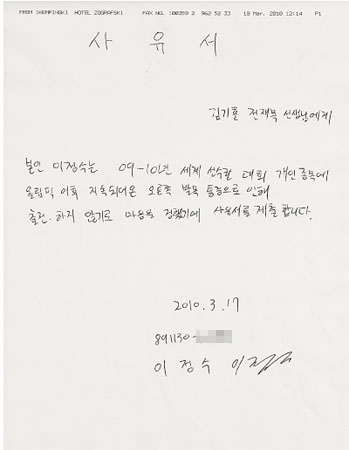 FROM :KEMPINSKI HOTEL ZOGRAFSKI FAX NO. :00359 2 962 52 33 18 Mar. 2010 12:14 P1
사 유 서
김기훈 전재목 선생님에게
본인 이정수는 09-10년 세계 선수권 대회 개인종목에
올림픽 이후 지속되어온 오른쪽 발목 통증으로 인해
출전 하지 않기로 마음을 정했기에 사유서를 제출합니다.
2010. 3. 17
891130-
이 정 수